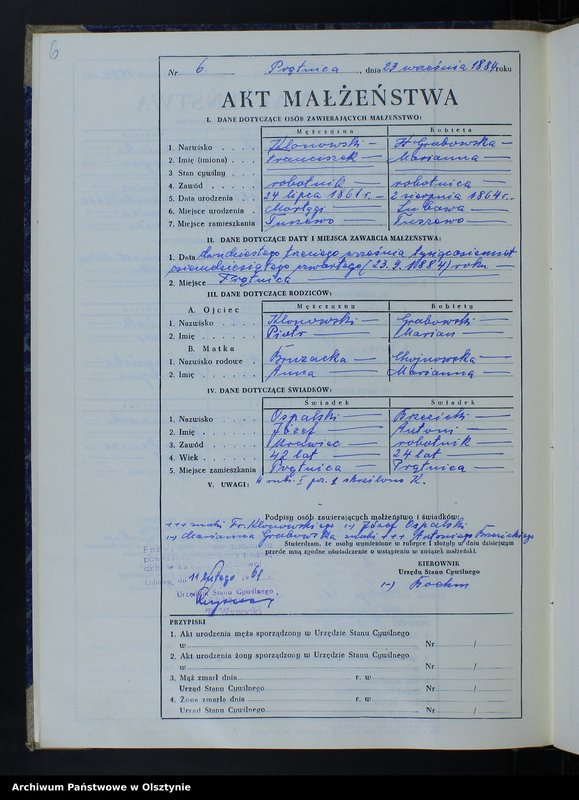 6
Nr 6 Prątnica, dnia 23 września 1884 roku
AKT MAŁŻEŃSTWA
I. DANE DOTYCZĄCE OSÓB ZAWIERAJĄCYCH MAŁŻEŃSTWO:
Mężczyzna Kobieta
1. Nazwisko . . . . Klonowski — Grabowska —
2. Imię (imiona) . . . Franciszek — Marianna —
3. Stan cywilny
4. Zawód . . . . . robotnik — robotnica —
5. Data urodzenia . . 24 lipca 1861 r. — 2 sierpnia 1864 r. —
6. Miejsce urodzenia . — Lubawa —
7. Miejsce zamieszkania Tuszewo — Tuszewo —
II. DANE DOTYCZĄCE DATY I MIEJSCA ZAWARCIA MAŁŻEŃSTWA:
1. Data dwudziestego trzeciego września tysiącosiemset
osiemdziesiątego czwartego (23.9.1884) roku —
2. Miejsce Prątnica —
III. DANE DOTYCZĄCE RODZICÓW:
Mężczyzny Kobiety
A. Ojciec
1. Nazwisko . . . . Klonowski — Grabowski —
2. Imię . . . . . Piotr — Marian —
B. Matka
1. Nazwisko rodowe . — Chojnowska —
2. Imię . . . . . Anna — Marianna —
IV. DANE DOTYCZĄCE ŚWIADKÓW:
Świadek Świadek
1. Nazwisko . . . . Ospalski — Brzezicki —
2. Imię . . . . . Józef — Antoni —
3. Zawód . . . . . Mrawiec — robotnik —
4. Wiek . . . . . 42 lat — 24 lat —
5. Miejsce zamieszkania Prątnica — Prątnica —
V. UWAGI: W rubr. I poz. 1 skreślono K.
Podpisy osób zawierających małżeństwo i świadków:
+++ znaki Fr. Klonowskiego (-) Józef Ospalski
(-) Marianna Grabowska znaki +++ Antoniego Brzezickiego
Stwierdzam, że osoby wymienione w rubryce I złożyły w dniu dzisiejszym
przede mną zgodne oświadczenie o wstąpieniu w związek małżeński.
KIEROWNIK
Urzędu Stanu Cywilnego
(-) Boehm
dn. 11 lutego 1961 r.
Urzędu Stanu Cywilnego
Wysocki
PRZYPISKI
1. Akt urodzenia męża sporządzony w Urzędzie Stanu Cywilnego
w Nr /
2. Akt urodzenia żony sporządzony w Urzędzie Stanu Cywilnego
w Nr /
3. Mąż zmarł dnia r. w
Urząd Stanu Cywilnego Nr /
4. Żona zmarła dnia r. w
Urząd Stanu Cywilnego Nr /
Archiwum Państwowe w Olsztynie